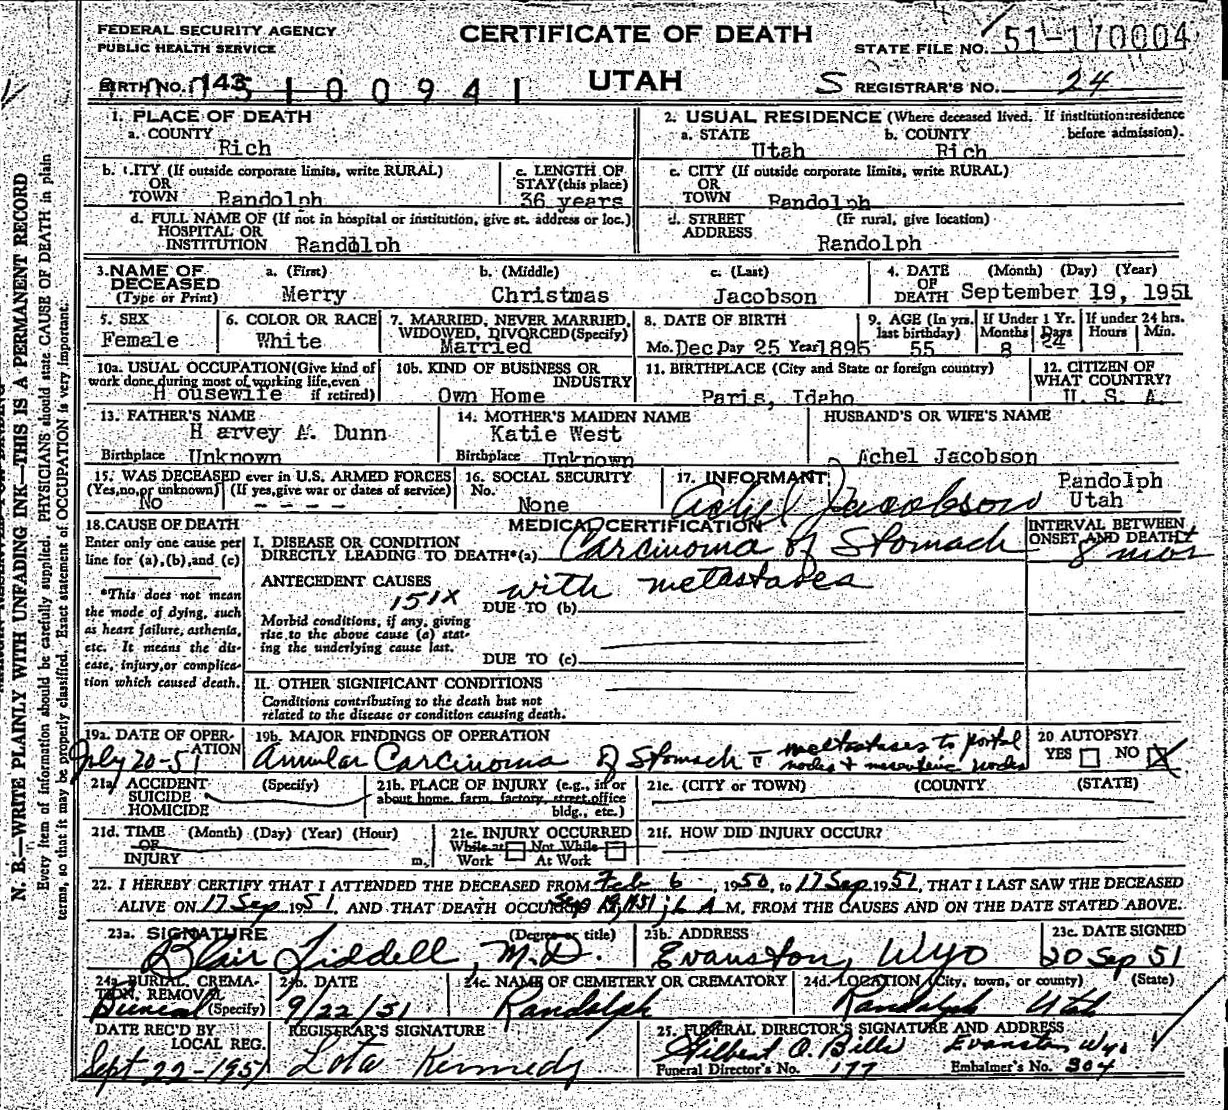 FEDERAL SECURITY AGENCY
PUBLIC HEALTH SERVICE
CERTIFICATE OF DEATH
STATE FILE NO. 51-170004
BIRTH NO. 143
5 1 0 0 9 4 1
UTAH
S REGISTRAR'S NO. 24
1. PLACE OF DEATH
a. COUNTY
Rich
2. USUAL RESIDENCE (Where deceased lived. If institution: residence before admission).
a. STATE b. COUNTY
Utah Rich
b. CITY (If outside corporate limits, write RURAL)
OR
TOWN Randolph
c. LENGTH OF
STAY (this place)
36 years
c. CITY (If outside corporate limits, write RURAL)
OR
TOWN Randolph
d. FULL NAME OF (If not in hospital or institution, give st. address or loc.)
HOSPITAL OR
INSTITUTION Randolph
d. STREET (If rural, give location)
ADDRESS
Randolph
3. NAME OF
DECEASED
(Type or Print)
a. (First) b. (Middle) c. (Last)
Merry Christmas Jacobson
4. DATE (Month) (Day) (Year)
OF
DEATH September 19, 1951
5. SEX
Female
6. COLOR OR RACE
White
7. MARRIED, NEVER MARRIED,
WIDOWED, DIVORCED (Specify)
Married
8. DATE OF BIRTH
Mo. Dec Day 25 Year 1895
9. AGE (In yrs.
last birthday)
55
If Under 1 Yr.
Months Days
8 24
If under 24 hrs.
Hours Min.
10a. USUAL OCCUPATION (Give kind of
work done during most of working life, even
if retired)
H ousewife
10b. KIND OF BUSINESS OR
INDUSTRY
Own Home
11. BIRTHPLACE (City and State or foreign country)
Paris, Idaho
12. CITIZEN OF
WHAT COUNTRY?
U. S. A.
13. FATHER'S NAME
H arvey M. Dunn
Birthplace Unknown
14. MOTHER'S MAIDEN NAME
Katie West
Birthplace Unknown
HUSBAND'S OR WIFE'S NAME
Achel Jacobson
15. WAS DECEASED ever in U.S. ARMED FORCES
(Yes, no, or unknown) (If yes, give war or dates of service)
No - - - -
16. SOCIAL SECURITY
No.
None
17. INFORMANT
Achel Jacobson
Randolph
Utah
18. CAUSE OF DEATH
Enter only one cause per
line for (a), (b), and (c)
*This does not mean
the mode of dying, such
as heart failure, asthenia,
etc. It means the dis-
ease, injury, or complica-
tion which caused death.
MEDICAL CERTIFICATION
I. DISEASE OR CONDITION
DIRECTLY LEADING TO DEATH* (a) Carcinoma of Stomach
INTERVAL BETWEEN
ONSET AND DEATH
8 mos
ANTECEDENT CAUSES with metastases
151X
DUE TO (b)
Morbid conditions, if any, giving
rise to the above cause (a) stat-
ing the underlying cause last.
DUE TO (c)
II. OTHER SIGNIFICANT CONDITIONS
Conditions contributing to the death but not
related to the disease or condition causing death.
19a. DATE OF OPER-
ATION
July 20-51
19b. MAJOR FINDINGS OF OPERATION
Annular Carcinoma of Stomach c metastases to portal
nodes + mesenteric nodes
20 AUTOPSY?
YES NO X
21a. ACCIDENT (Specify)
SUICIDE
HOMICIDE
21b. PLACE OF INJURY (e.g., in or
about home, farm, factory, street, office
bldg., etc.)
21c. (CITY or TOWN) (COUNTY) (STATE)
21d. TIME (Month) (Day) (Year) (Hour)
OF
INJURY m.
21e. INJURY OCCURRED
While at Not While
Work At Work
21f. HOW DID INJURY OCCUR?
22. I HEREBY CERTIFY THAT I ATTENDED THE DECEASED FROM Feb 6, 1950, to 17 Sep 1951, THAT I LAST SAW THE DECEASED
ALIVE ON 17 Sep 1951, AND THAT DEATH OCCURRED Sep 19, 1951, A M. FROM THE CAUSES AND ON THE DATE STATED ABOVE.
23a. SIGNATURE (Degree or title)
Blair Liddell, M.D.
23b. ADDRESS
Evanston, Wyo
23c. DATE SIGNED
20 Sep 51
24a. BURIAL, CREMA-
TION, REMOVAL
(Specify)
Burial
24b. DATE
9/22/51
24c. NAME OF CEMETERY OR CREMATORY
Randolph
24d. LOCATION (City, town, or county) (State)
Randolph Utah
DATE REC'D BY
LOCAL REG.
Sept 22-1951
REGISTRAR'S SIGNATURE
Lota Kennedy
25. FUNERAL DIRECTOR'S SIGNATURE AND ADDRESS
Gilbert O. Bills Evanston Wyo
Funeral Director's No. 177 Embalmer's No. 304
N. B.—WRITE PLAINLY WITH UNFADING INK—THIS IS A PERMANENT RECORD
Every item of information should be carefully supplied. PHYSICIANS should state CAUSE OF DEATH in plain
terms, so that it may be properly classified. Exact statement of OCCUPATION is very important.